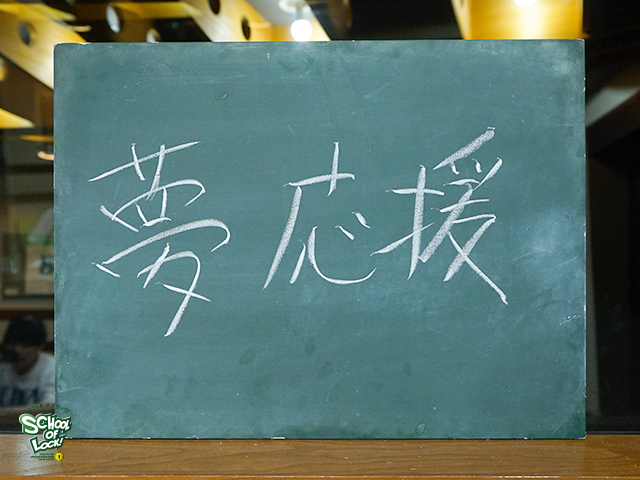 夢応援
SCHOOL OF LOCK!